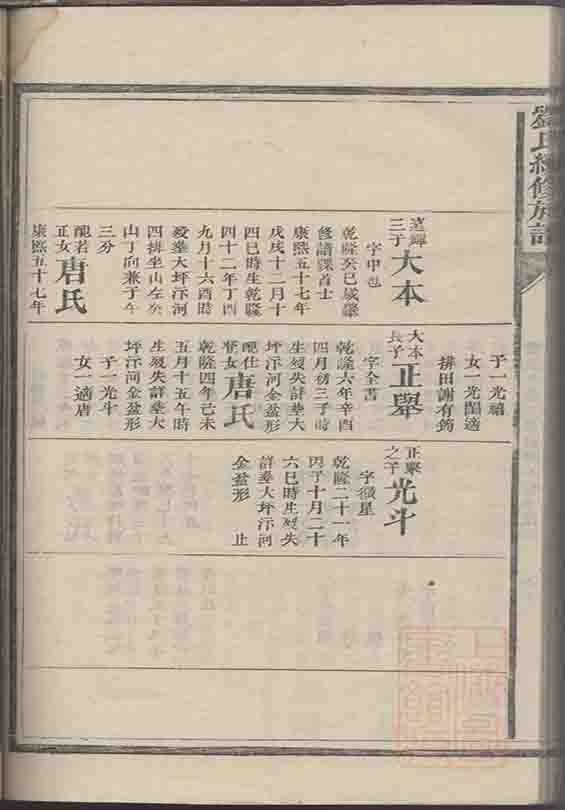 劉氏經修族譜
達輝三子 大本
字中邑
乾隆癸巳歲肇
修譜課首士
康熙五十七年
戊戌十二月十
四巳時生乾隆
四十二年丁酉
九月十六酉時
歿塟大坪汴河
四排坐山左癸
山丁向兼子午
三分
配若正女 唐氏
康熙五十七年
子一光禧
女一光閨適
排田謝有筠
大本長子 正舉
字全書
乾隆六年辛酉
四月初三子時
生歿失詳塟大
坪汴河金盆形
配仕賢女 唐氏
乾隆四年己未
五月十五午時
生歿失詳塟大
坪汴河金盆形
子一光斗
女一適唐
正舉之子 光斗
字徵星
乾隆二十一年
丙子十月二十
六巳時生歿失
詳塟大坪汴河
金盆形 止